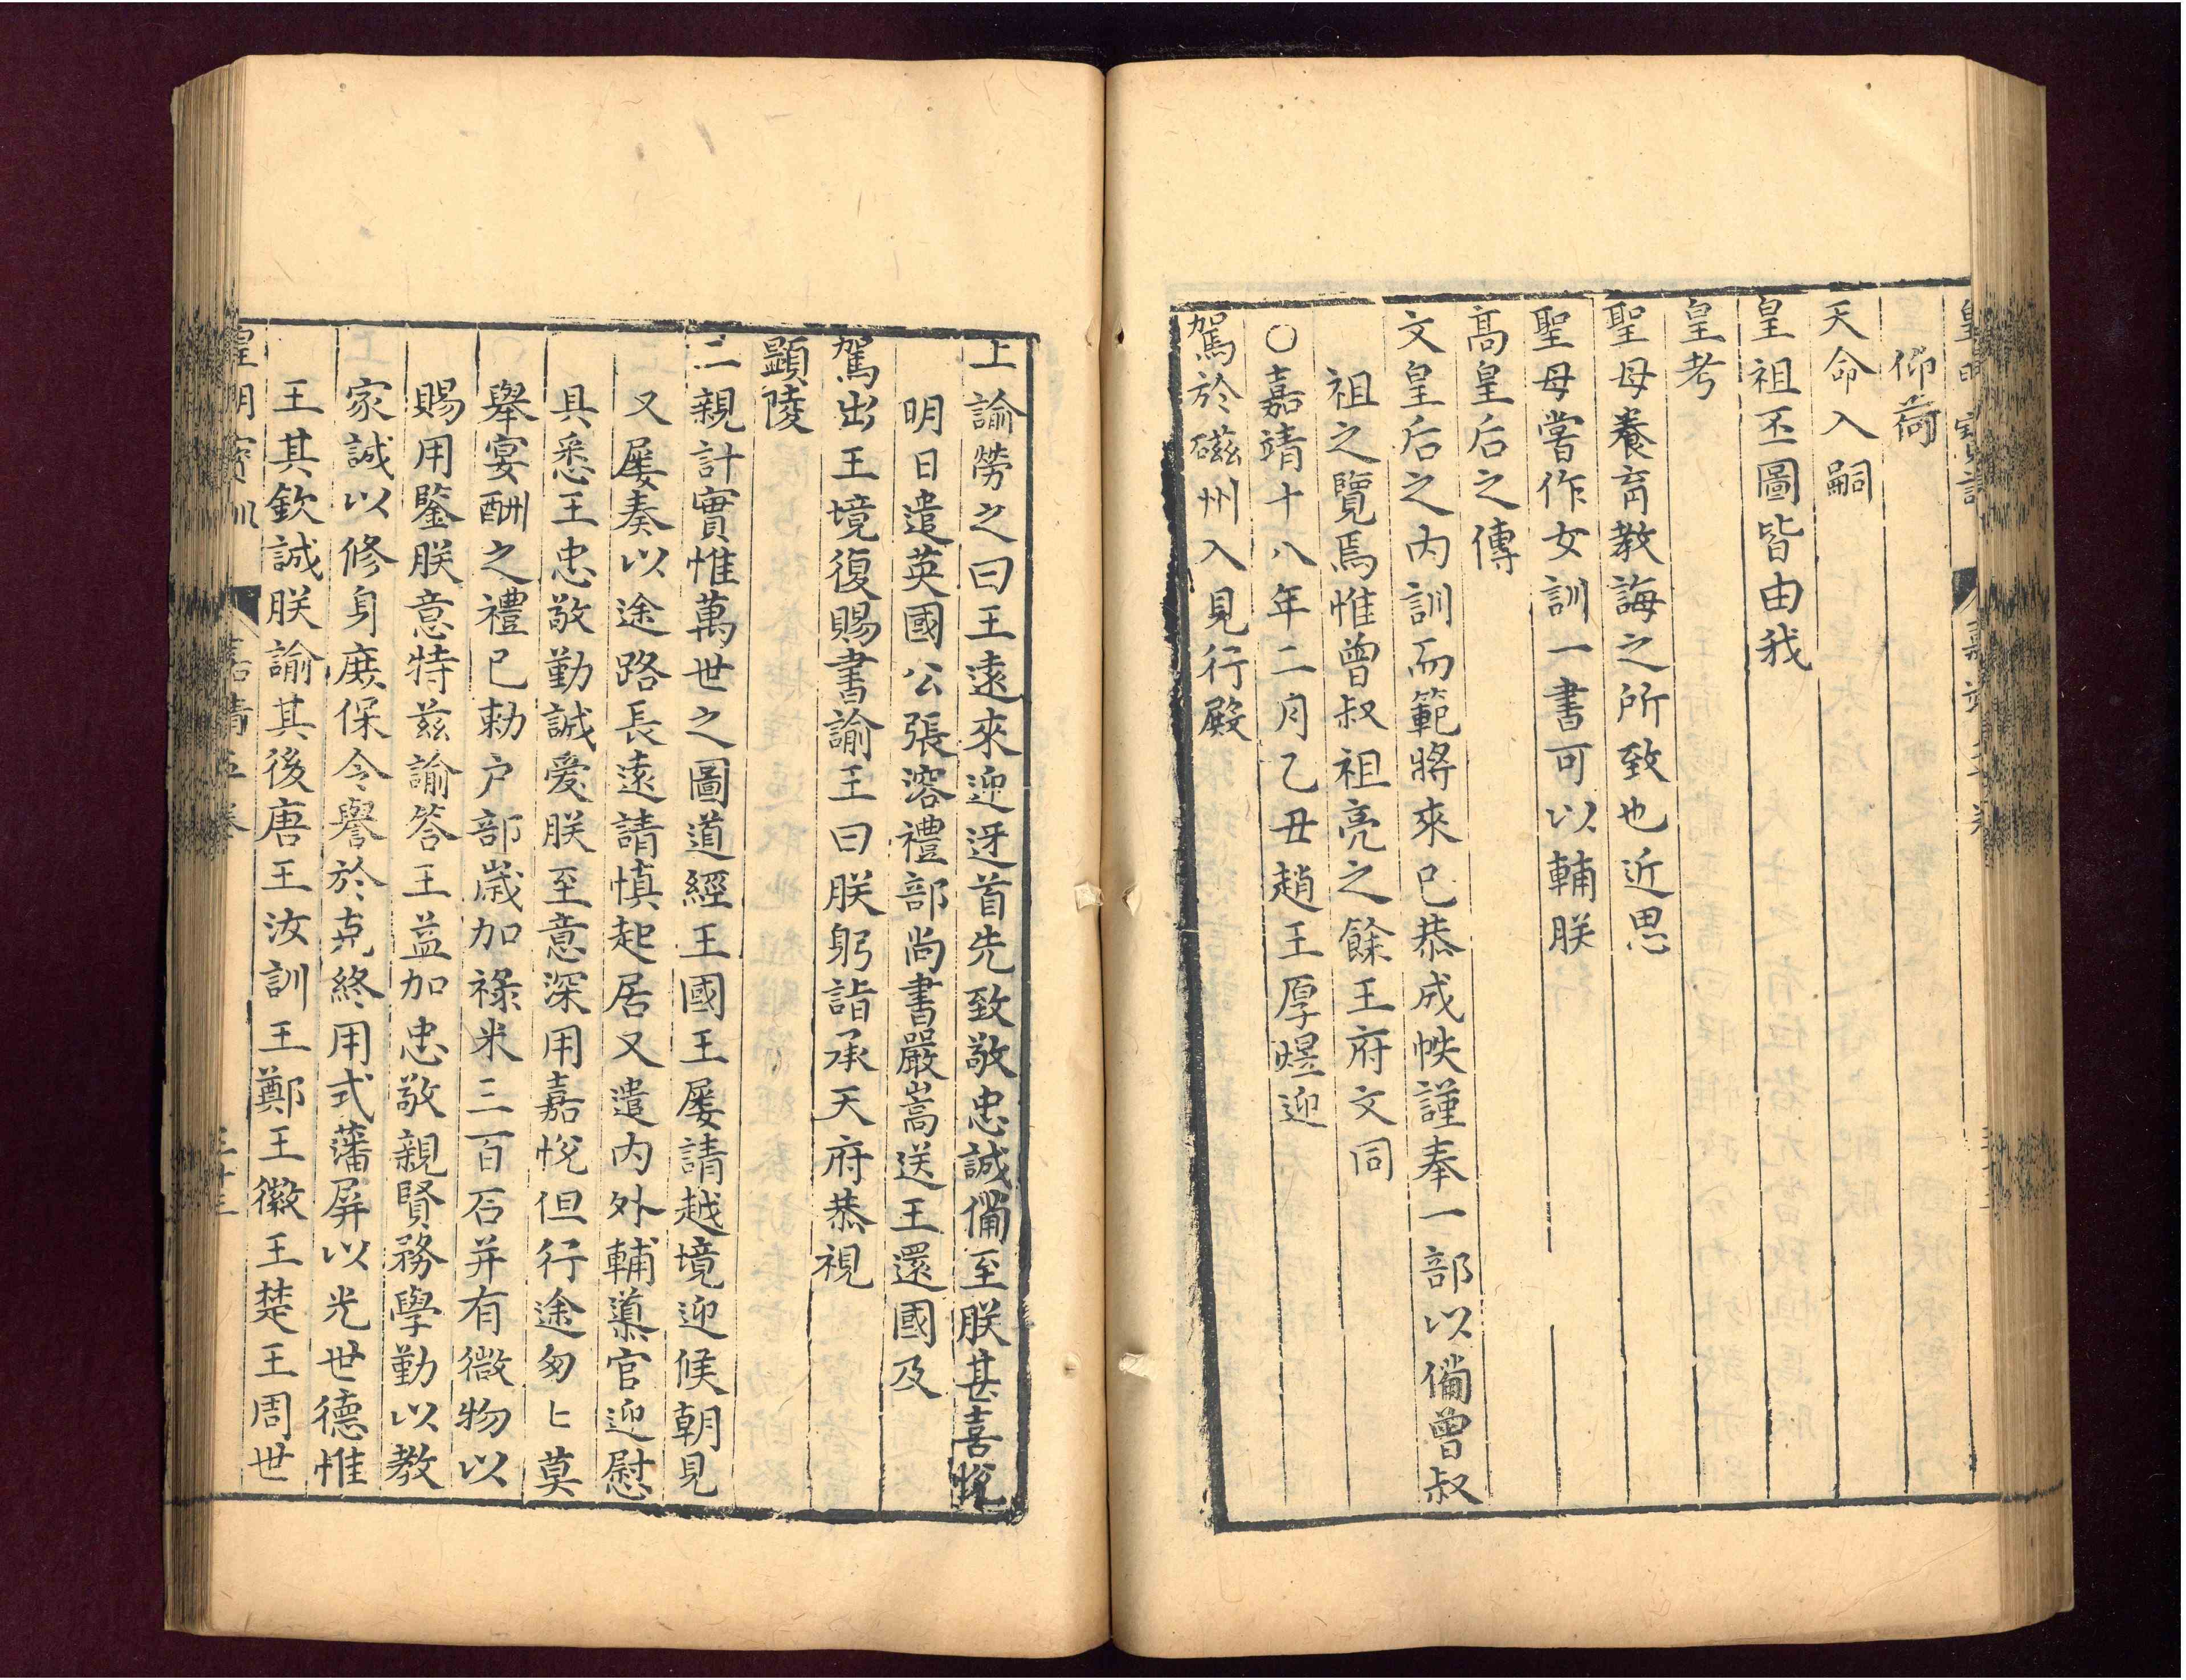 皇明寶訓
嘉靖五卷
仰荷
天命入嗣
皇祖丕圖皆由我
皇考
聖母養育教誨之所致也近思
聖母嘗作女訓一書可以輔朕
高皇后之傳
文皇后之内訓而範將來已恭成帙謹奉一部以備曾叔
祖之覽焉惟曾叔祖亮之餘王府文同
○嘉靖十八年二月乙丑趙王厚煜迎
駕於磁州入見行殿
上諭勞之曰王遠來迎迓首先致敬忠誠備至朕甚喜悅
明日遣英國公張溶禮部尚書嚴嵩送王還國及
駕出王境復賜書諭王曰朕躬詣承天府恭視
顯陵
二親計實惟萬世之圖道經王國王屡請越境迎候朝見
又屡奏以途路長遠請慎起居又遣内外輔導官迎慰
具悉王忠敬勤誠愛朕至意深用嘉悅但行途匆匕莫
舉宴酬之禮已勅户部歲加祿米三百石并有微物以
賜用鑒朕意特兹諭答王益加忠敬親賢務學勤以教
家誠以修身庶保令譽於克終用式藩屏以光世德惟
王其欽誠朕諭其後唐王汝訓王鄭王徽王楚王周世
皇明寶訓
嘉靖五卷